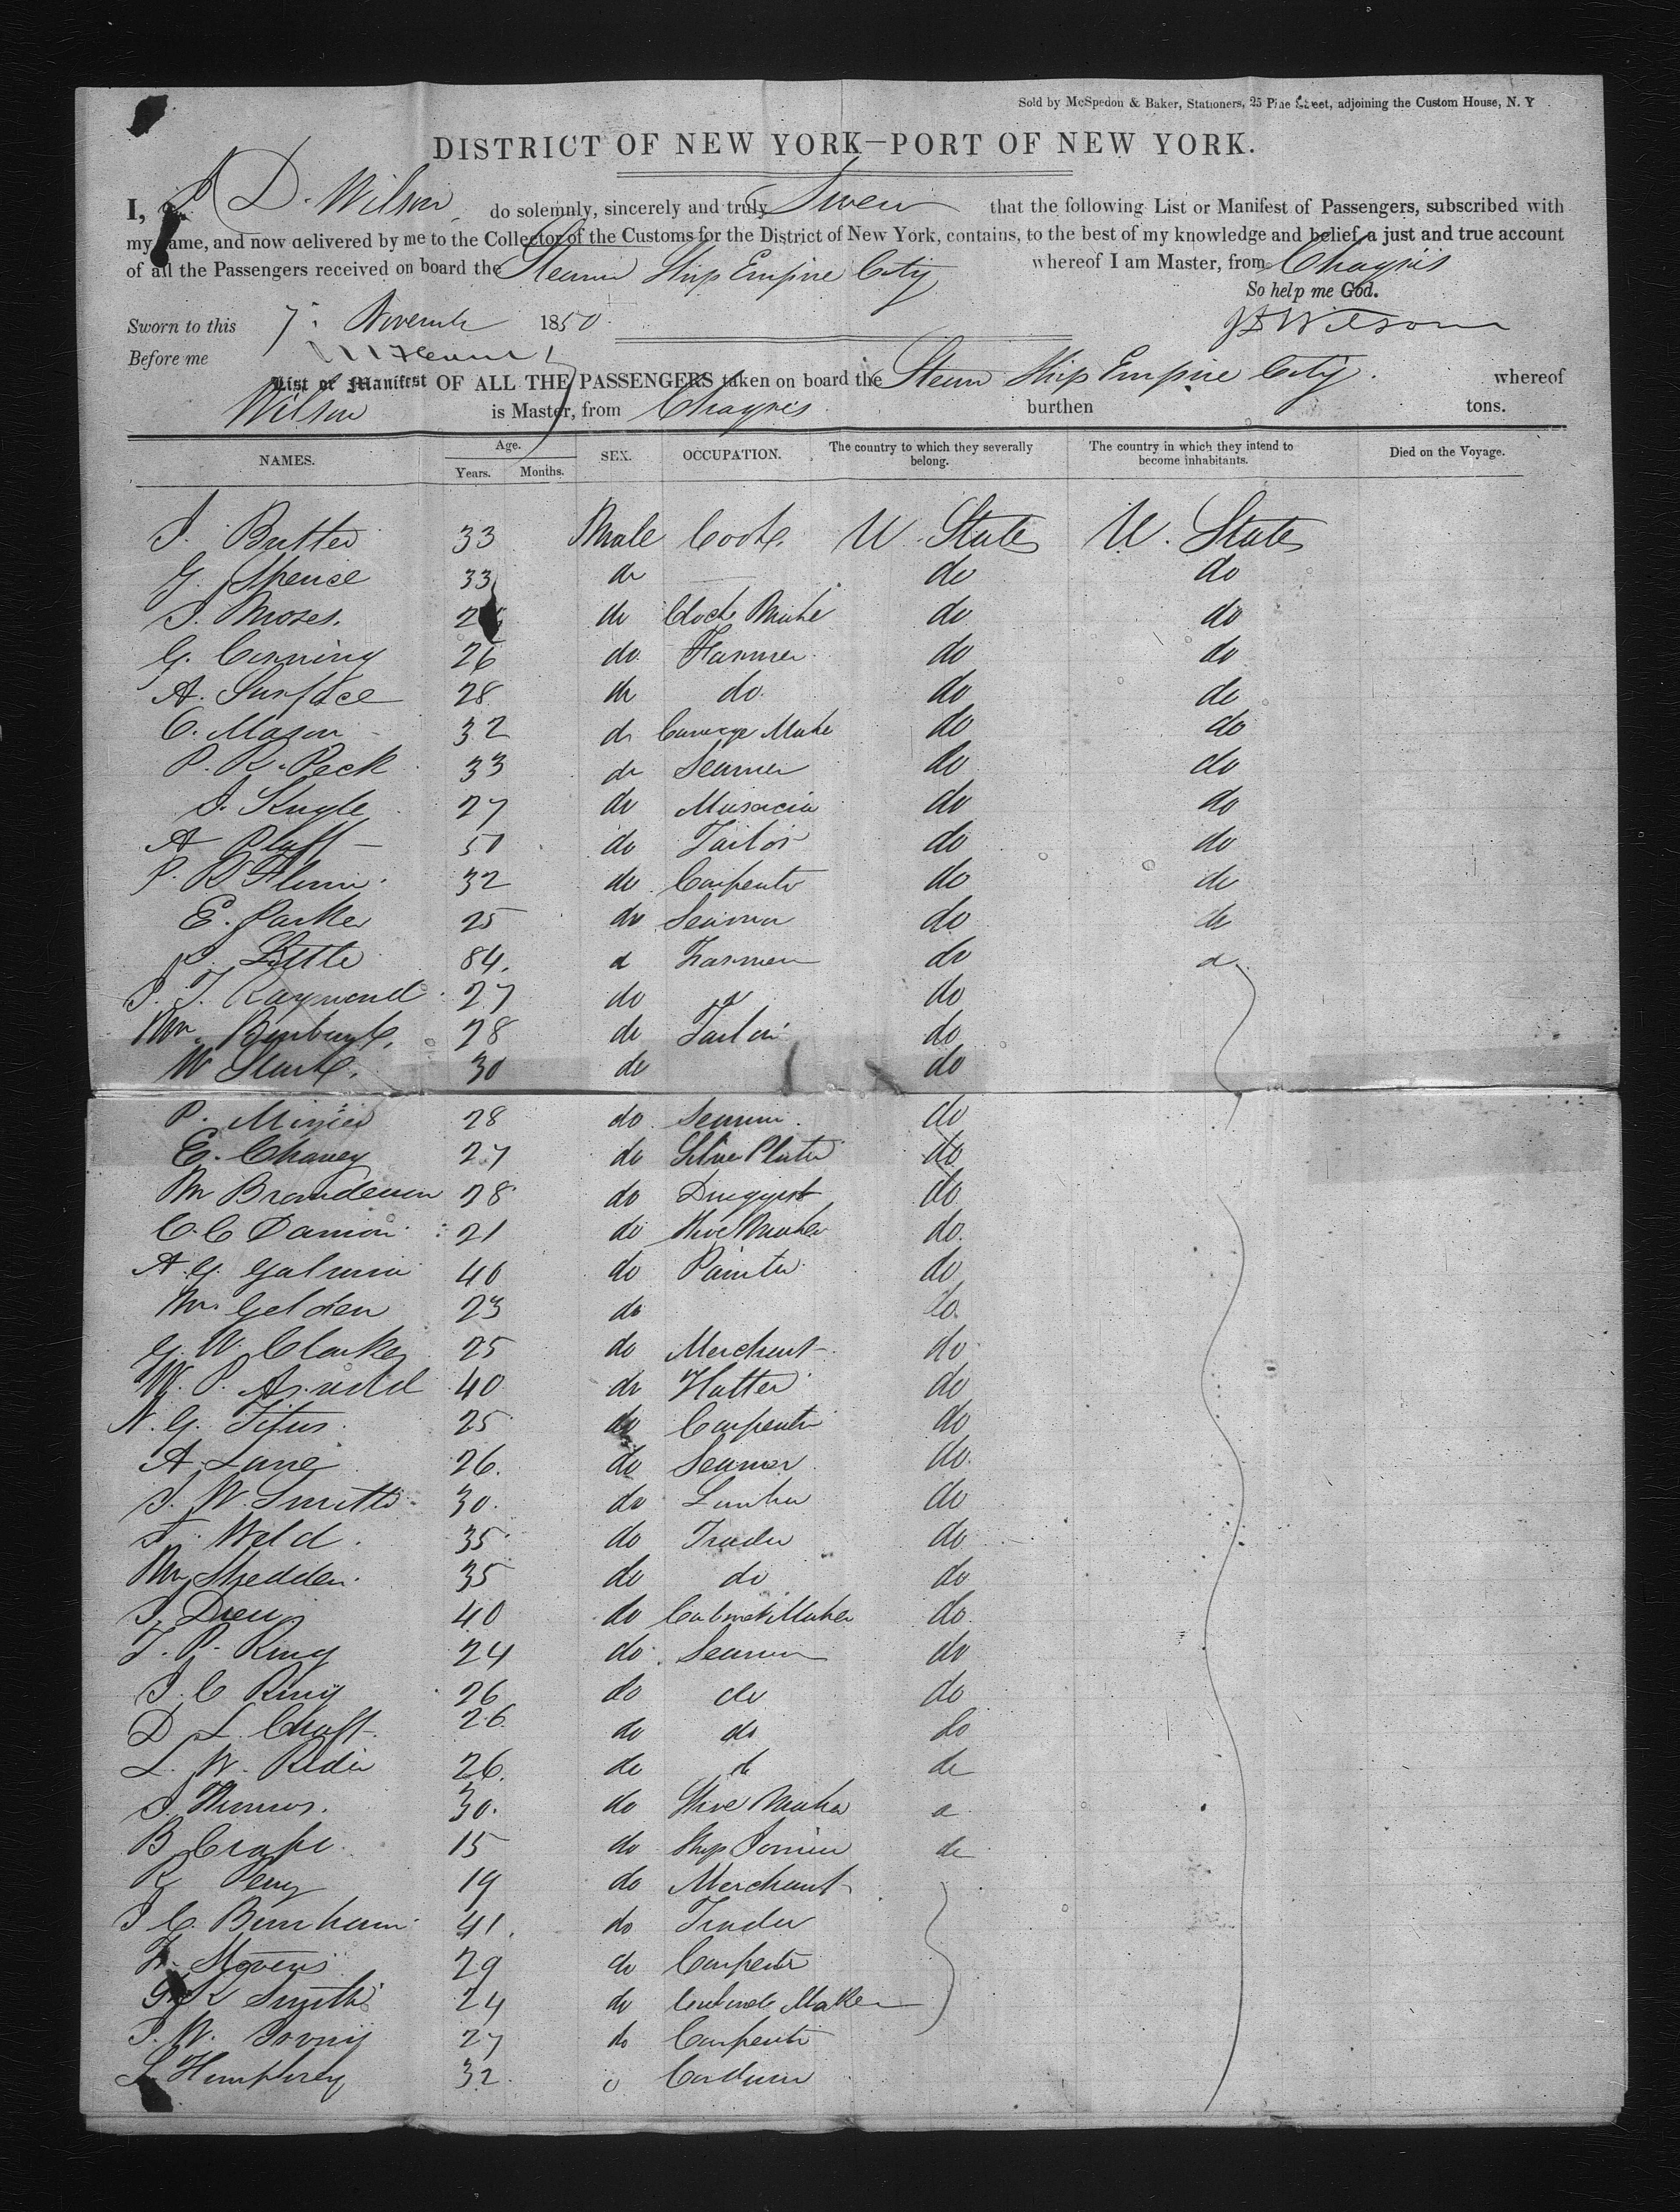 Sold by McSpedon & Baker, Stationers, 25 Pine Street, adjoining the Custom House, N. Y
DISTRICT OF NEW YORK—PORT OF NEW YORK.
I, J D. Wilson do solemnly, sincerely and truly Swear that the following List or Manifest of Passengers, subscribed with
my name, and now delivered by me to the Collector of the Customs for the District of New York, contains, to the best of my knowledge and belief, a just and true account
of all the Passengers received on board the Steam Ship Empire City whereof I am Master, from Chagres
So help me God.
Sworn to this 7 November 1850 J D Wilson
Before me
List or Manifest OF ALL THE PASSENGERS taken on board the Steam Ship Empire City. whereof
Wilson is Master, from Chagres burthen tons.
NAMES. Age. Years. Months. SEX. OCCUPATION. The country to which they severally belong. The country in which they intend to become inhabitants. Died on the Voyage.
J. Butter 33 Male Cook U. States U. States
G. Spence 33 do do do
J. Moses. do Clock Make do do
G. Conning 26 do Farmer do do
A. Surface 28 do do do do
C. Mason 32 do Carriage Make do do
P. R. Peck 33 do Seamen do do
J. Kugle 27 do Musicia do do
A Plaff 50 do Tailor do do
P. R Flemi 32 do Carpenter do do
E. Parker 25 do Seaman do do
J. Little 84. d Farmer do d
J. T. Raymond 27 do d do
Wm 28 do Tailor do
W Stark. 30 do do
P. 28 do Seaman do
E. Chaney 27 do Silver Plater do
Wm 28 do Druggist do
C. C Damon 21 do Shoe Maker do
A. G. 40 do Painter do
Wm. Gelden 23 do do
G. W. Clarke 25 do Merchant do
W. P. Arnold 40 do Hatter do
N. G. Titus 25 do Carpenter do
A. Lane 26. do Seaman do
J. W. Smith 30. do do
Weld. 35 do Trader do
Wm Shedden. 35 do do do
J. Drew 40 do Cabinet Maker do
T. P. Ring 24 do Seaman do
J. C Ring 26 do do do
D L. Chaff 26 do do do
L. W. Rider 26. do do do
J. Thomas. 30. do Shoe Maker d
B. Craft 15 do Ship Joiner do
R Perry 19 do Merchant
J C. Burnham 41. do Trader
Stevens 29 do Carpenter
Smith 24 do Cabinet Maker
J. W. 27 do Carpenter
L Humphrey 32.